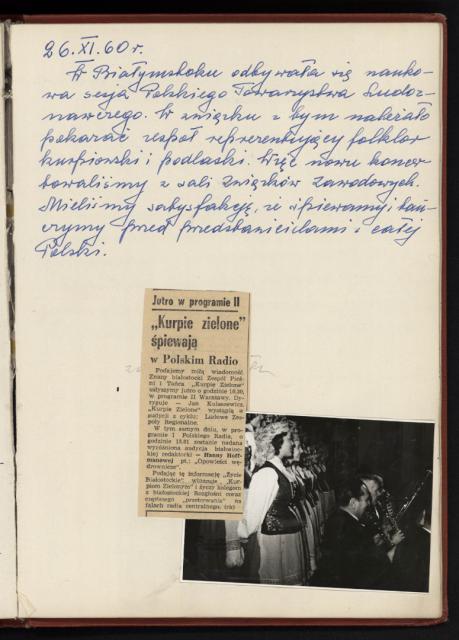 26.XI.60 r.
W Białymstoku odbywała się nauko-
wa sesja Polskiego Towarzystwa Ludoz-
nawczego. W związku z tym należało
pokazać zespół reprezentujący folklor
kurpiowski i podlaski. Więc nowu koncer
towaliśmy z sali Związków Zawodowych.
Mieliśmy satysfakcję, że śpiewamy i tań-
czymy przed przedstawicielami z całej
Polski.
Jutro w programie II
„Kurpie zielone”
śpiewają
w Polskim Radio
Podajemy miłą wiadomość
Znany białostocki Zespół Pieś-
ni i Tańca „Kurpie Zielone”
usłyszymy jutro o godzinie
w programie II Warszawy. Dy-
ryguje — Jan
„Kurpie Zielone” wystąpią w
audycji z cyklu: Ludowe Zes-
poły Regionalne.
W tym samym dniu, w pro-
gramie I Polskiego Radia, o
godzinie zostanie nadana
wyróżniona audycja białostoc-
kiej redaktorki — Hanny Hoff-
manowej pt.: „Opowieści wę-
drownicze”.
Podając tę informację „Życie
Białostockie” „Kur-
piom Zielonym” i życzy kolegom
z białostockiej Rozgłośni coraz
częstszego na
falach radia centralnego.